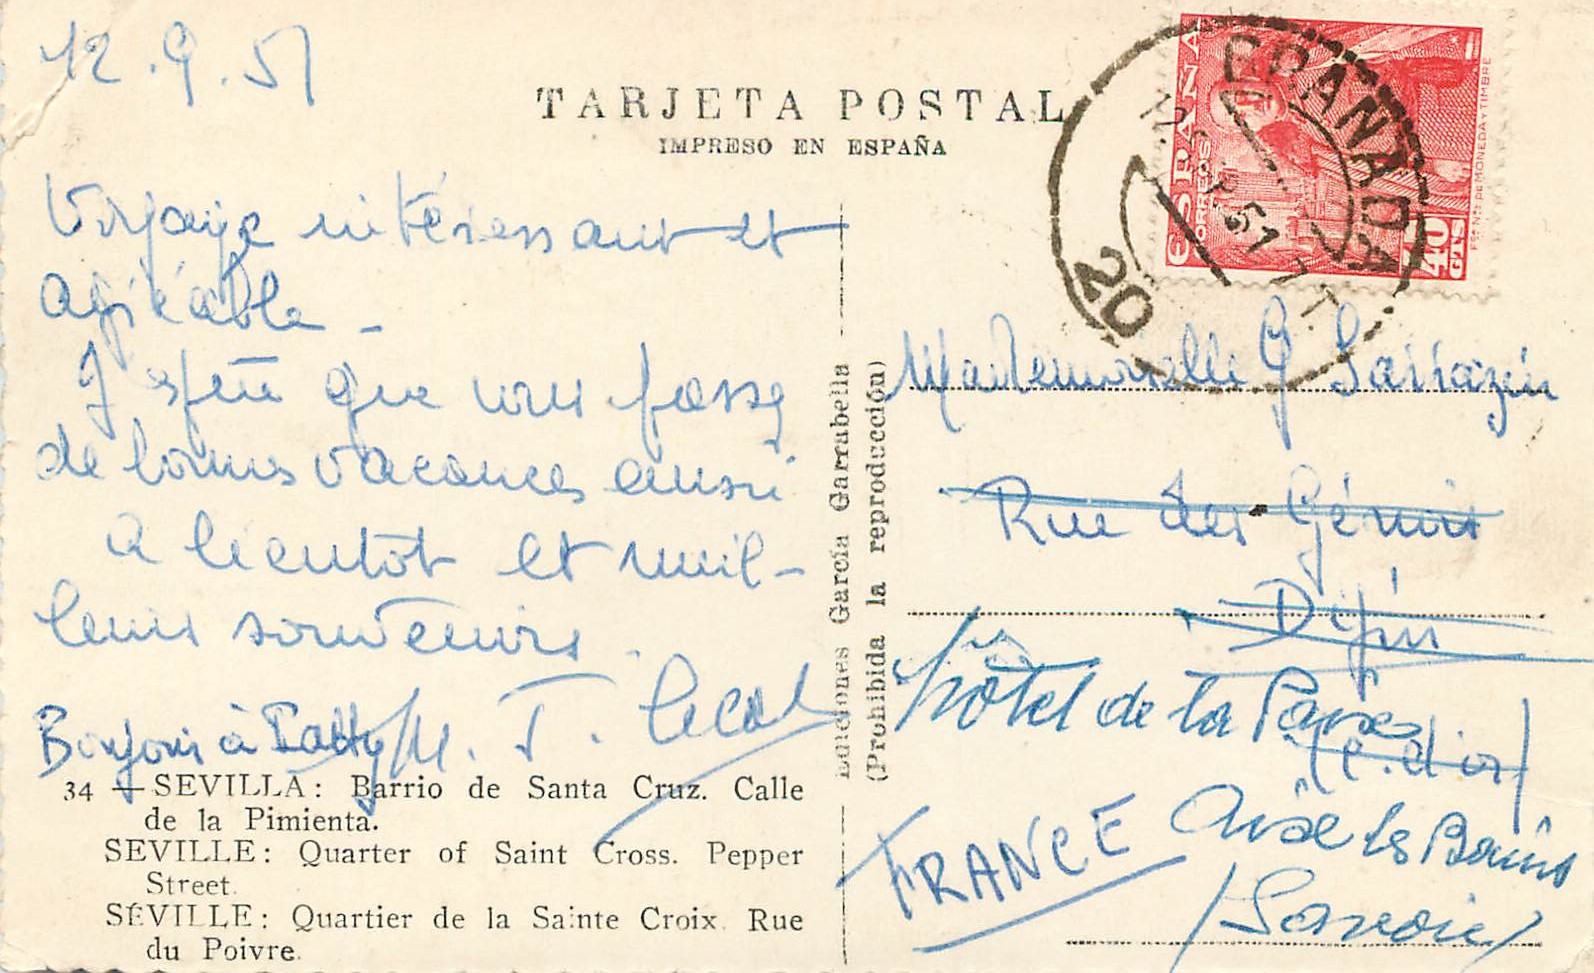 12.9.51
TARJETA POSTAL
IMPRESO EN ESPAÑA
Voyage intéressant et
agréable -
J'espère que vous passez
de bonnes vacances aussi
A bientôt et meil-
leurs souvenirs.
Bonjour à Patty M. T. Lecol
34 - SEVILLA: Barrio de Santa Cruz. Calle
de la Pimienta.
SEVILLE: Quarter of Saint Cross. Pepper
Street.
SÉVILLE: Quartier de la Sainte Croix. Rue
du Poivre.
Ediciones García Garrabella
(Prohibida la reproducción)
ESPAÑA
CORREOS
40
CTS
FCA. NAL. DE MONEDA Y TIMBRE
GRANADA
51
20
Mademoiselle G Sarrazin
Rue des Génois
Dijon
(C. d'or)
hôtel de la Paix
Aix les Bains
(Savoie)
FRANCE